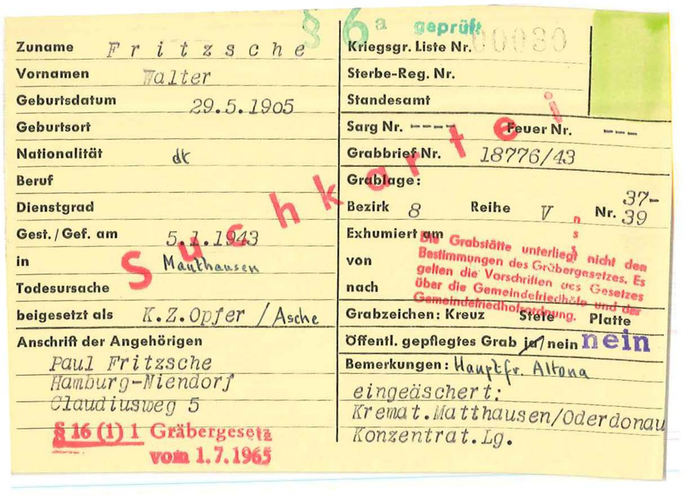 § 6a geprüft
Zuname Fritzsche
Vornamen Walter
Geburtsdatum 29.5.1905
Geburtsort
Nationalität dt
Beruf
Dienstgrad
Gest./Gef. am 5.1.1943
in Mauthausen
Todesursache
beigesetzt als K.Z.Opfer / Asche
Anschrift der Angehörigen
Paul Fritzsche
Hamburg-Niendorf
Claudiusweg 5
§ 16 (1) 1 Gräbergesetz
vom 1.7.1965
Suchkartei
Kriegsgr. Liste Nr. 00030
Sterbe-Reg. Nr.
Standesamt
Sarg Nr. ---- Feuer Nr. ---
Grabbrief Nr. 18776/43
Grablage:
Bezirk 8 Reihe V Nr. 37-39
Exhumiert am
von
nach
Die Grabstätte unterliegt nicht den
Bestimmungen des Gräbergesetzes. Es
gelten die Vorschriften des Gesetzes
über die Gemeindefriedhöfe und der
Gemeindefriedhofordnung.
Grabzeichen: Kreuz Stele Platte
Öffentl. gepflegtes Grab ja/nein nein
Bemerkungen: Hauptfr. Altona
eingeäschert:
Kremat.Matthausen/Oderdonau
Konzentrat.Lg.